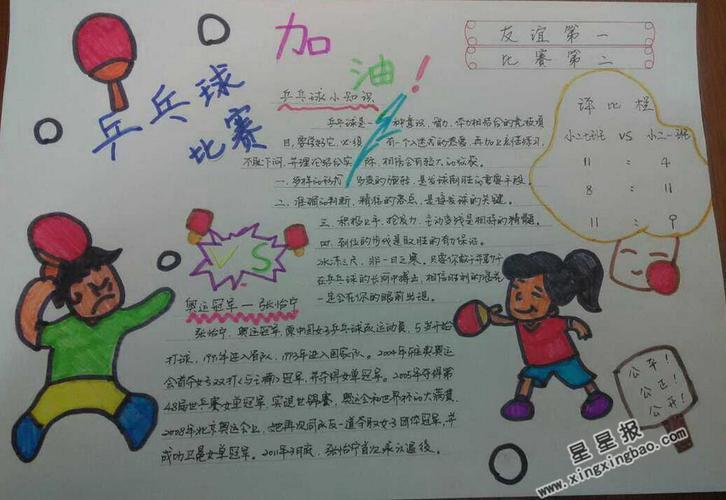 乒乓球
比赛
加
油！
友谊第一
比赛第二
乒乓球小知识
乒乓球是一种喜议、智力、体力相结合的竞技项
目，要得好它，必须有一个入迷式的爱意，再加上勤练习、
不耻下问，并理论结合实际，相信会有较大的成就。
一、多样的形式、多变的旋转，是发球制胜的重要手段。
二、准确的判断，精练的落点，是接发球的关键。
三、积极上手，抢先发力，主动变线是相持的精髓。
四、到位的步伐是取胜的有力保证。
冰冻三尺，非一日之寒。只要你敢于并勤于
在乒乓球的长河中搏击，相信胜利的浪花
一定会在你的眼前出现。
比程
小二七班 VS 小二一班
11 : 4
8 : 11
11 : 9
VS
奥运冠军—张怡宁
张怡宁，奥运冠军，原中国女子乒乓球队运动员，5岁开始
打球，1991年进入省队，1993年进入国家队。2004年雅典奥运
会首夺女子双打(与王楠)冠军，并夺得女单冠军。2005年夺得第
48届世乒赛女单冠军，实现世锦赛，奥运会和世界杯的大满贯，
2008年北京奥运会上，她再次同队友一道夺取女子团体冠军，并
成功卫冕女单冠军。2011年3月底，张怡宁首次承认退役。
公平！
公正！
公开！
星星报
www.xingxingbao.com